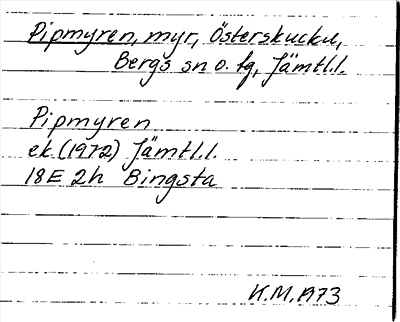 Pipmyren, myr, Österskucku,
Bergs sn o. tg, Jämtl.l.
Pipmyren
ek. (1972) Jämtl.l.
18E 2h Bingsta
K.M. 1973